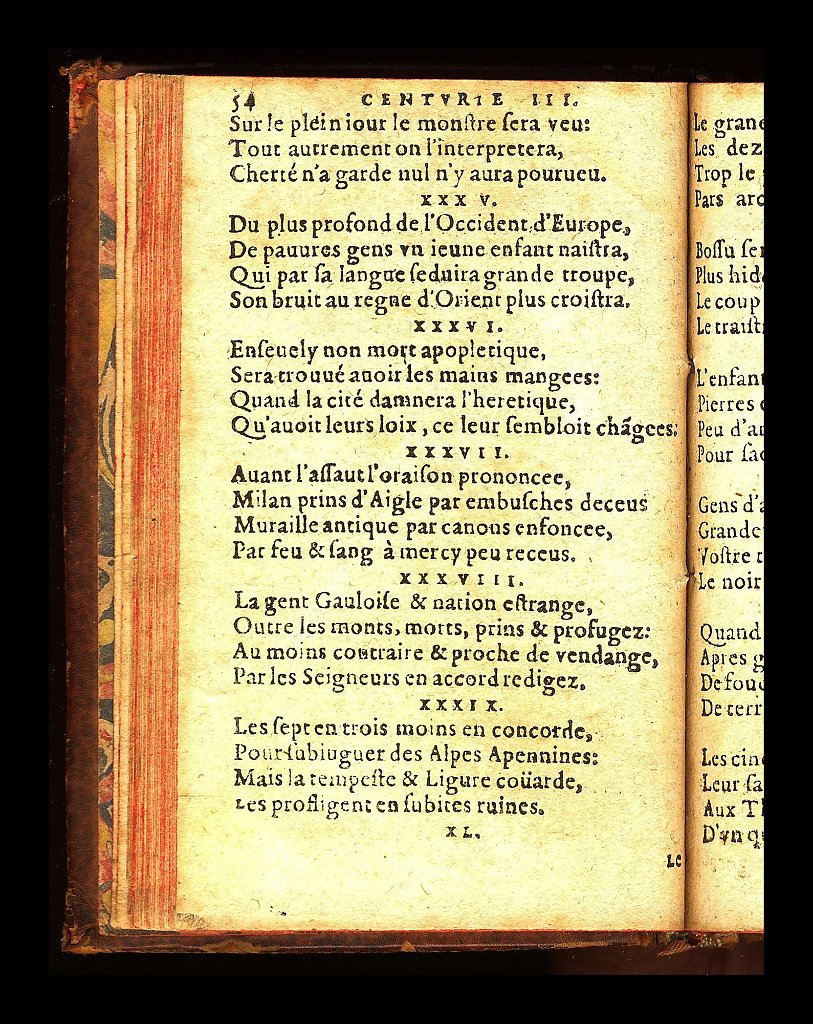 54 CENTVRIE III.
Sur le plein iour le monſtre ſera veu:
Tout autrement on l'interpretera,
Cherté n'a garde nul n'y aura pourueu.
XXXV.
Du plus profond de l'Occident d'Europe,
De pauures gens vn ieune enfant naiſtra,
Qui par ſa langue ſeduira grande troupe,
Son bruit au regne d'Orient plus croiſtra.
XXXVI.
Enſeuely non mort apopletique,
Sera trouué auoir les mains mangees:
Quand la cité damnera l'heretique,
Qu'auoit leurs loix, ce leur ſembloit chãgees:
XXXVII.
Auant l'aſſaut l'oraiſon prononcee,
Milan prins d'Aigle par embuſches deceus
Muraille antique par canons enfoncee,
Par feu & ſang à mercy peu receus.
XXXVIII.
La gent Gauloiſe & nation eſtrange,
Outre les monts, morts, prins & profugez:
Au moins contraire & proche de vendange,
Par les Seigneurs en accord redigez.
XXXIX.
Les ſept en trois moins en concorde,
Pour ſubiuguer des Alpes Apennines:
Mais la tempeſte & Ligure coüarde,
Les profligent en ſubites ruines.
XL.
Le
Le gran
Les dez
Trop le
Pars arc
Boſſu ſe
Plus hid
Le coup
Le traiſt
L'enfan
Pierres
Peu d'a
Pour ſa
Gens d'a
Grande
Voſtre
Le noir
Quand
Apres g
De fou
De terr
Les cin
Leur ſa
Aux T
D'vn q